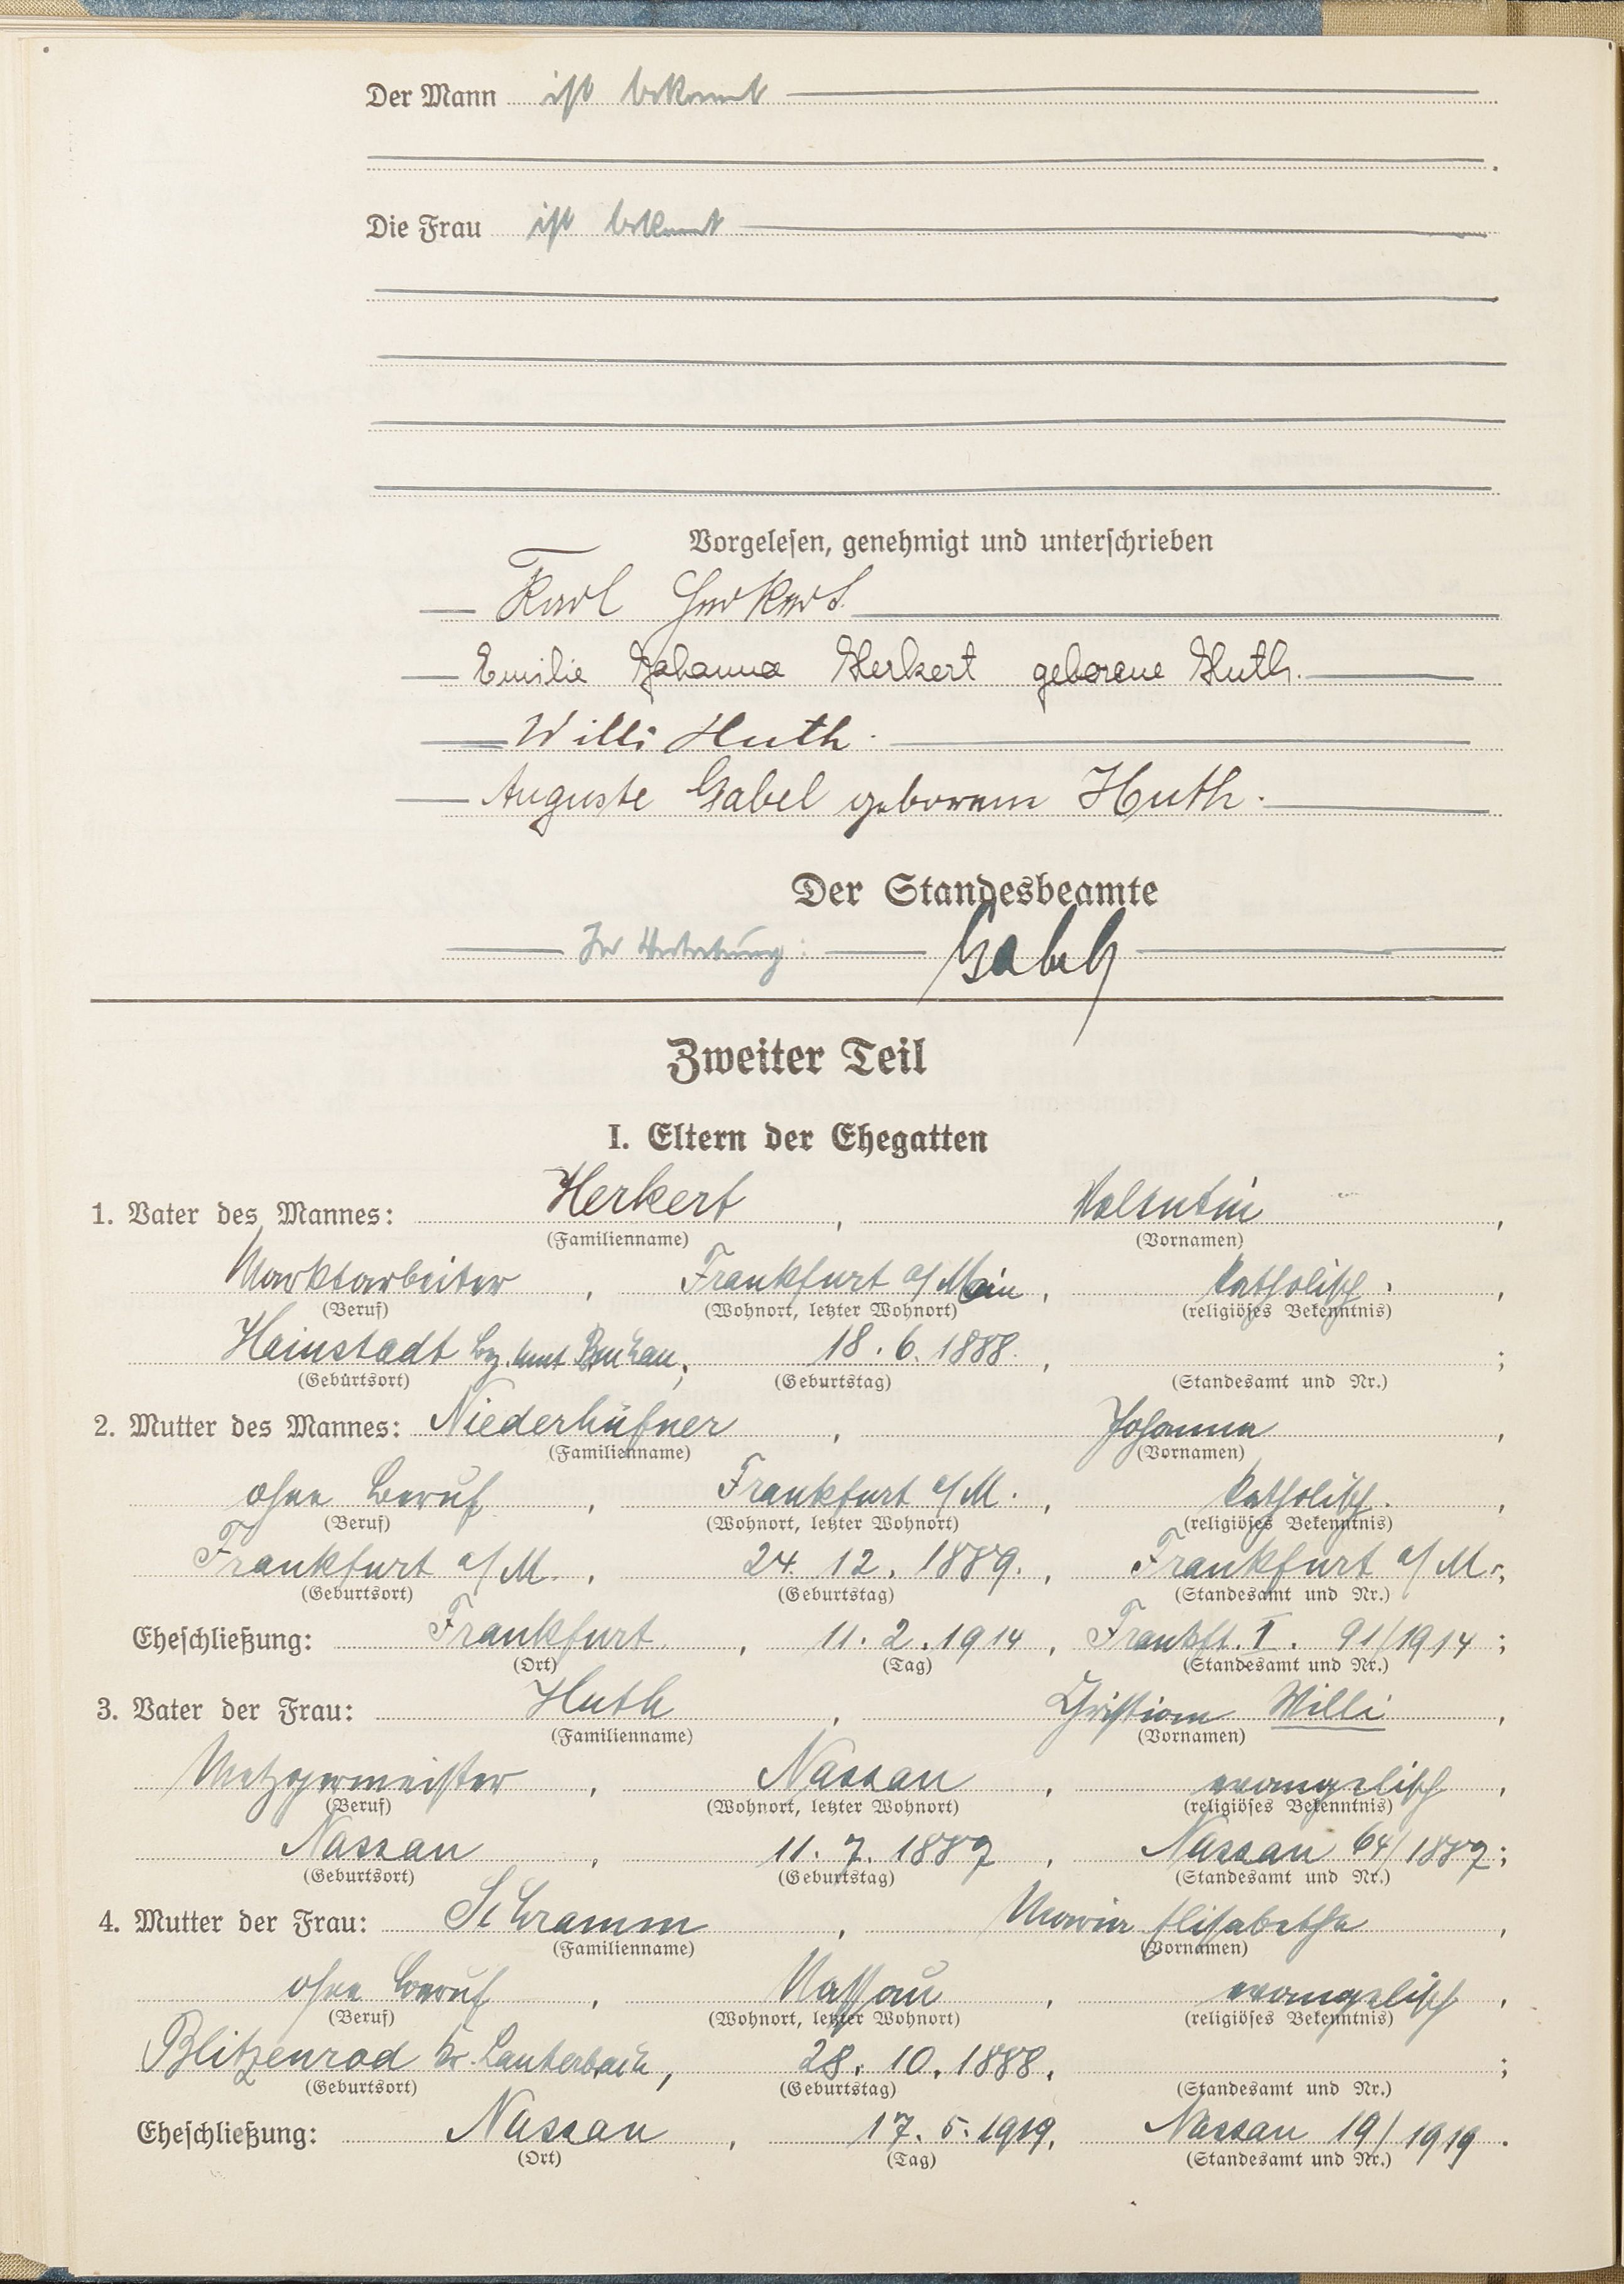 Der Mann ist bekannt
Die Frau ist bekannt
Vorgelesen, genehmigt und unterschrieben
Karl Herkert
Emilie Johanna Herkert geborene Huth.
Willi Huth.
Auguste Gabel geborene Huth.
Der Standesbeamte
In Vertretung: Gabel
Zweiter Teil
I. Eltern der Ehegatten
1. Vater des Mannes: Herkert, Valentin,
(Familienname) (Vornamen)
Marktarbeiter, Frankfurt a/Main, katholisch.,
(Beruf) (Wohnort, letzter Wohnort) (religiöses Bekenntnis)
Hainstadt Bez. Amt Buchau, 18.6.1888., ;
(Geburtsort) (Geburtstag) (Standesamt und Nr.)
2. Mutter des Mannes: Niederhüfner, Johanna,
(Familienname) (Vornamen)
ohne Beruf, Frankfurt a/M., katholisch.,
(Beruf) (Wohnort, letzter Wohnort) (religiöses Bekenntnis)
Frankfurt a/M., 24.12.1889., Frankfurt a/M.;
(Geburtsort) (Geburtstag) (Standesamt und Nr.)
Eheschließung: Frankfurt, 11.2.1914, Frankft. I. 91/1914;
(Ort) (Tag) (Standesamt und Nr.)
3. Vater der Frau: Huth, Christian Willi,
(Familienname) (Vornamen)
Metzgermeister, Nassau, evangelisch,
(Beruf) (Wohnort, letzter Wohnort) (religiöses Bekenntnis)
Nassau, 11.7.1887, Nassau 64/1887;
(Geburtsort) (Geburtstag) (Standesamt und Nr.)
4. Mutter der Frau: Schramm, Marie Elisabetha,
(Familienname) (Vornamen)
ohne Beruf, Nassau, evangelisch,
(Beruf) (Wohnort, letzter Wohnort) (religiöses Bekenntnis)
Blitzenrod Kr. Lauterbach, 28.10.1888, ;
(Geburtsort) (Geburtstag) (Standesamt und Nr.)
Eheschließung: Nassau, 17.5.1919, Nassau 19/1919.
(Ort) (Tag) (Standesamt und Nr.)